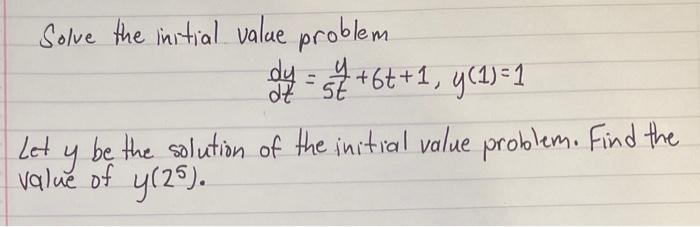 Solve the initial value problem
dy/dt = y/5t + 6t + 1, y(1) = 1
Let y be the solution of the initial value problem. Find the
value of y(2⁵).